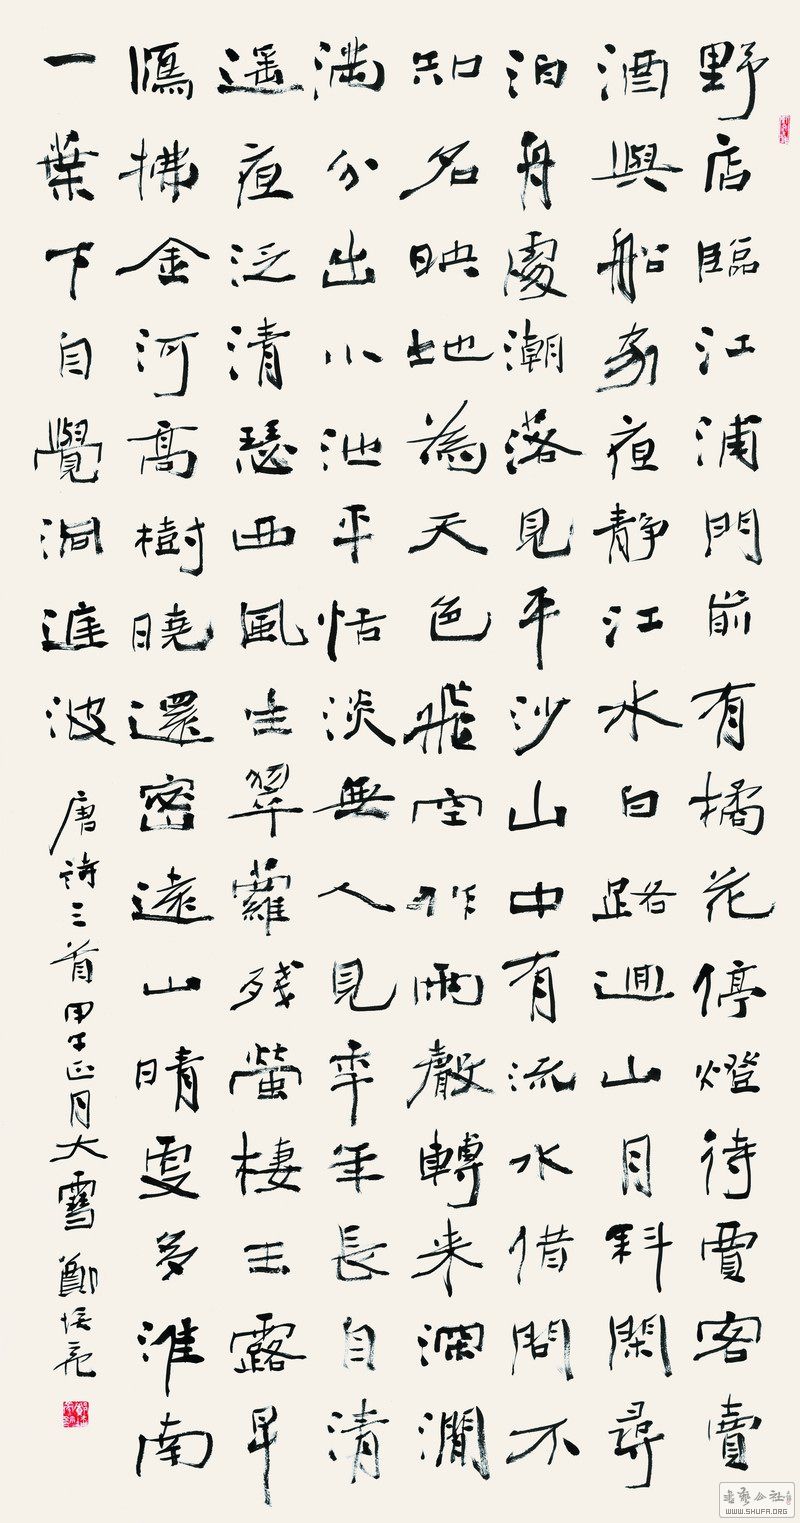 野店臨江浦門前有橘花停燈待賈客賣
酒與船家夜靜江水白路迴山月斜閑尋
泊舟處潮落見平沙山中有流水借問不
知名映地為天色飛空作雨聲轉來深澗
滿分出小池平恬淡無人見年年長自清
遥夜泛清瑟西風生翠蘿殘螢棲玉露早
鴈拂金河高樹曉還密遠山晴更多淮南
一葉下自覺洞庭波
唐詩三首甲午正月大雪鄭培亮
WWW.SHUFA.ORG